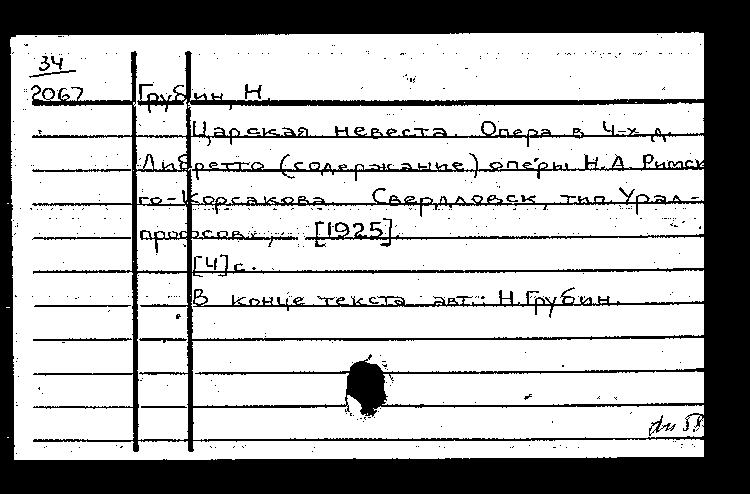 34
2067
Грубин, Н.
Царская невеста. Опера в 4-х д.
Либретто (содержание) оперы Н.А. Римск
го-Корсакова. Свердловск, тип. Урал-
профсов., [1925].
[4] с.
В конце текста авт.: Н. Грубин.